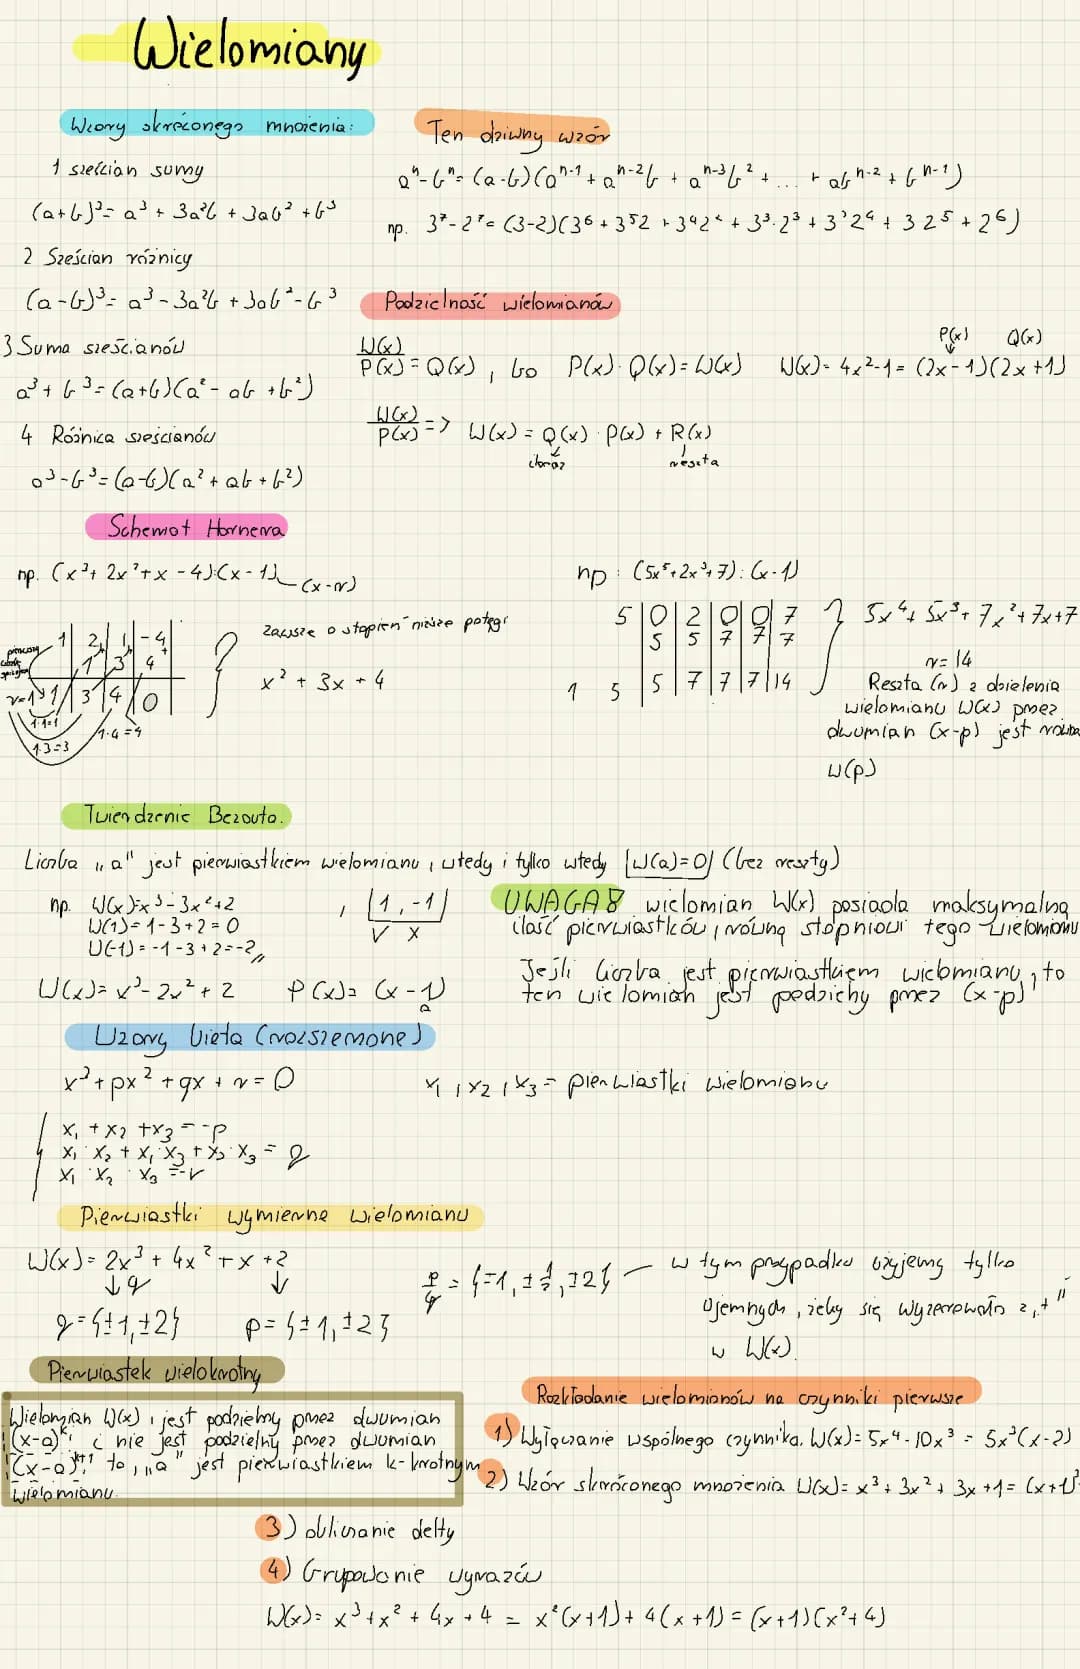 Wielomiany
Wzory skróconego mnożenia:
1 sześcian sumy
(a+b)³= a³ + 3a²b + 3ab² + b³
2 Sześcian różnicy
(a-b)³= a³ - 3a²b + 3ab² - b³
3 Suma sześcianów
a³ + b³ = (a+b)(a² - ab + b²)
4 Różnica sześcianów
a³-b³=(a-b)(a² + ab + b²)
Ten dziwny wzór
aⁿ-bⁿ= (a-b)(aⁿ⁻¹ + aⁿ⁻²b + aⁿ⁻³b² + ... + abⁿ⁻² + bⁿ⁻¹)
np. 3⁷-2⁷= (3-2)(3⁶ + 3⁵2 + 3⁴2² + 3³·2³ + 3²2⁴ + 3 2⁵ + 2⁶)
Podzielność wielomianów
W(x)/P(x) = Q(x), bo P(x)·Q(x)=W(x)
P(x) Q(x)
W(x)= 4x²-1= (2x-1)(2x+1)
W(x)/P(x) => W(x) = Q(x) · P(x) + R(x)
iloraz reszta
Schemat Hornera
np. (x³+ 2x²+x - 4):(x - 1) (x-r)
1 | 2 | 1 | -4
1 | 3 | 4
r=1 1 | 3 | 4 | 0
1·1=1
1·3=3
1·4=4
zawsze o stopień niższe potęgi
x² + 3x + 4
np: (5x⁵+2x³+7):(x-1)
5 | 0 | 2 | 0 | 0 | 7
5 | 5 | 7 | 7 | 7
1 5 | 5 | 7 | 7 | 7 | 14
5x⁴+ 5x³+ 7x²+7x+7
r= 14
Reszta (r) z dzielenia
wielomianu W(x) przez
dwumian (x-p) jest równa
W(p)
Twierdzenie Bezouta.
Liczba „a" jest pierwiastkiem wielomianu, wtedy i tylko wtedy |W(a)=0| (bez reszty)
np. W(x)=x³-3x²+2 , |1,-1|
W(1)= 1-3+2=0 V X
W(-1)= -1-3+2=-2
W(x)= x³-2x²+2 P(x)= (x-1)
a
UWAGA! wielomian W(x) posiada maksymalną
ilość pierwiastków, równą stopniowi tego wielomianu
Jeśli liczba jest pierwiastkiem wielomianu, to
ten wielomian jest podzielny przez (x-p)
Wzory Vieta (rozszerzone)
x³+px²+qx+r=0 x₁, x₂, x₃ = pierwiastki wielomianu
x₁ + x₂ + x₃ = -p
x₁·x₂ + x₁·x₃ + x₂·x₃ = q
x₁·x₂·x₃ = -r
Pierwiastki wymierne wielomianu
W(x)= 2x³ + 4x² + x + 2
↓q ↓
q={±1,±2} p={±1,±2}
p/q = {±1, ±½, ±2} — w tym przypadku użyjemy tylko
ujemnych, żeby się wyzerowało z „+"
w W(x).
Pierwiastek wielokrotny
Wielomian W(x), jest podzielny przez dwumian
(x-a)ᵏ, i nie jest podzielny przez dwumian
(x-a)ᵏ⁺¹ to, „a" jest pierwiastkiem k-krotnym
wielomianu.
Rozkładanie wielomianów na czynniki pierwsze
1) Wyłączanie wspólnego czynnika. W(x)= 5x⁴-10x³ = 5x³(x-2)
2) Wzór skróconego mnożenia W(x)= x³+ 3x²+ 3x+1= (x+1)³
3) obliczanie delty
4) Grupowanie wyrazów
W(x)= x³+x² + 4x + 4 = x²(x+1)+ 4(x+1) = (x+1)(x²+4)